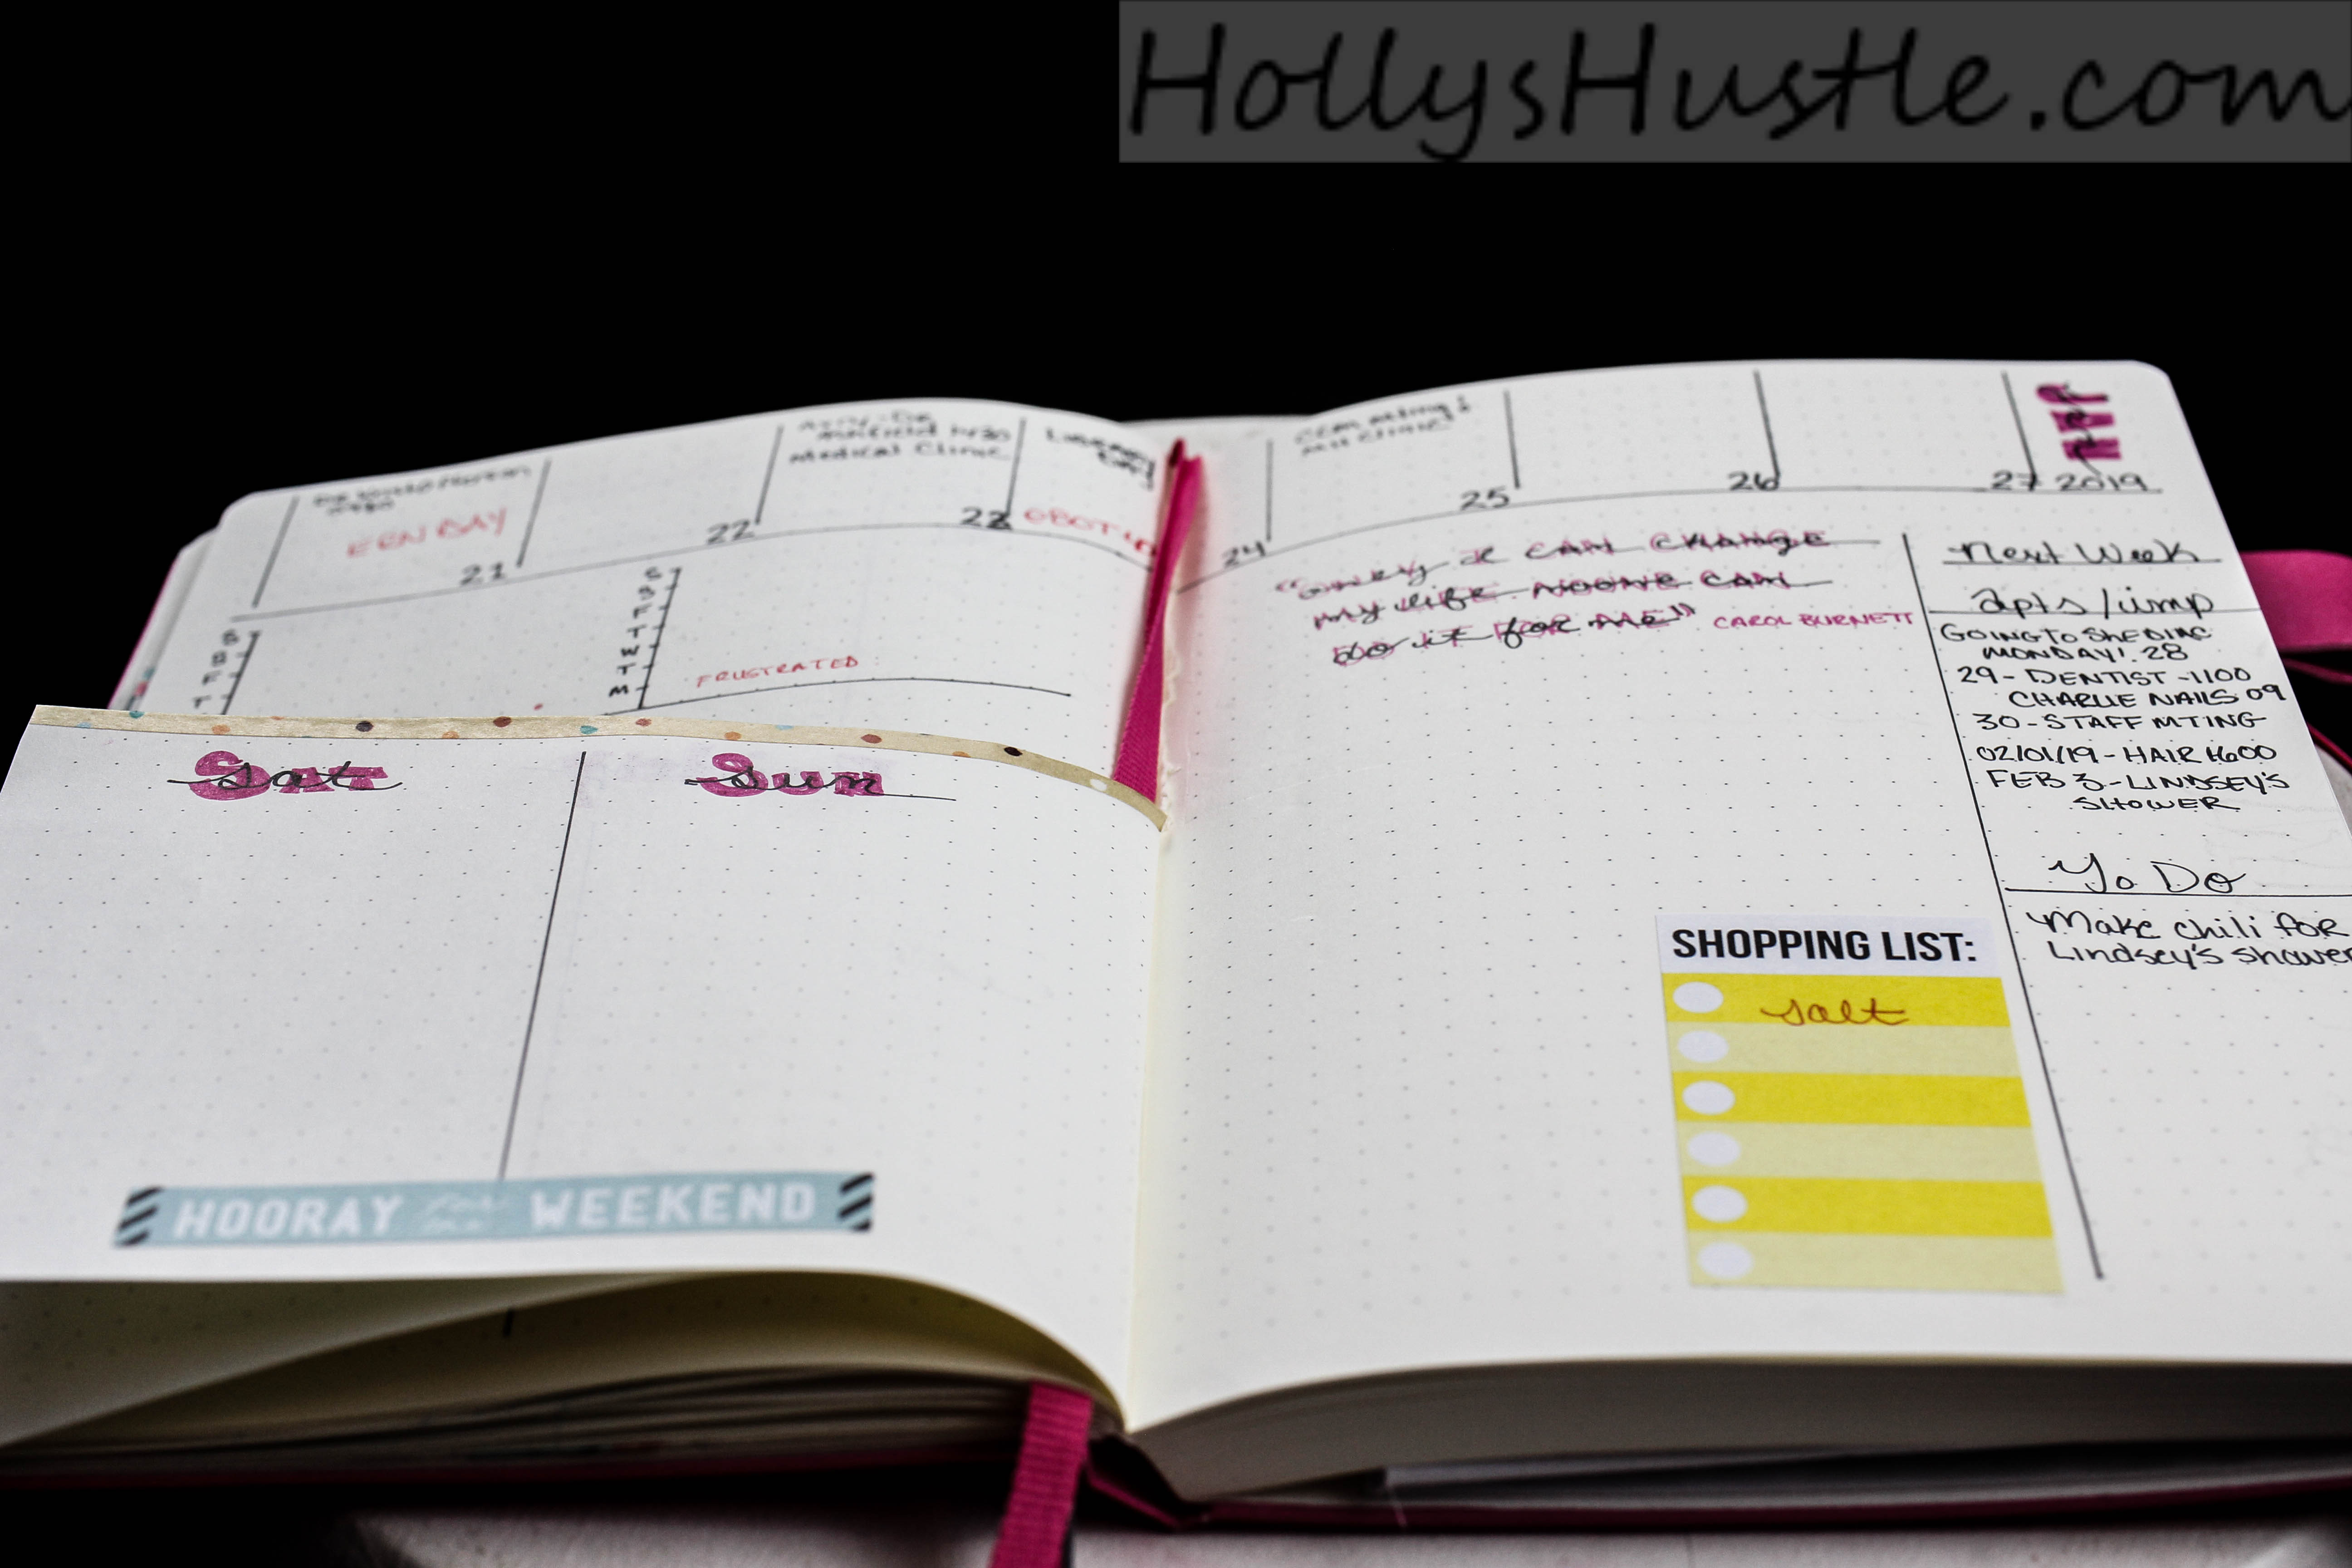 HollysHustle.com
Medical Clinic
EEN DAY
21
22
23
24
25
26
27
JAN
2019
S
S
F
T
S
S
F
T
W
T
M
FRUSTRATED
"Only I CAN CHANGE
my life. NOONE CAN
do it for me"
CAROL BURNETT
Next Week
Apts/imp
GOING TO SHEDIAC
MONDAY! 28
29- DENTIST -1100
CHARLIE NAILS 09
30-STAFF MTING
02/01/19-HAIR 1600
FEB 3-LINDSEY'S
SHOWER
To Do
Make chili for
Lindsey's shower
Sat
Sun
HOORAY for the WEEKEND
SHOPPING LIST:
salt